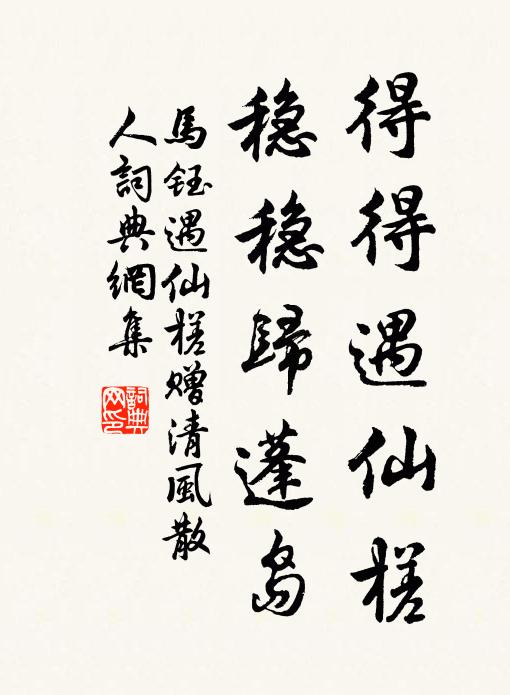 得得遇仙槎
稳稳歸蓬岛
馬鈺遇仙槎赠清風散
人詞典網集
詞典
网印